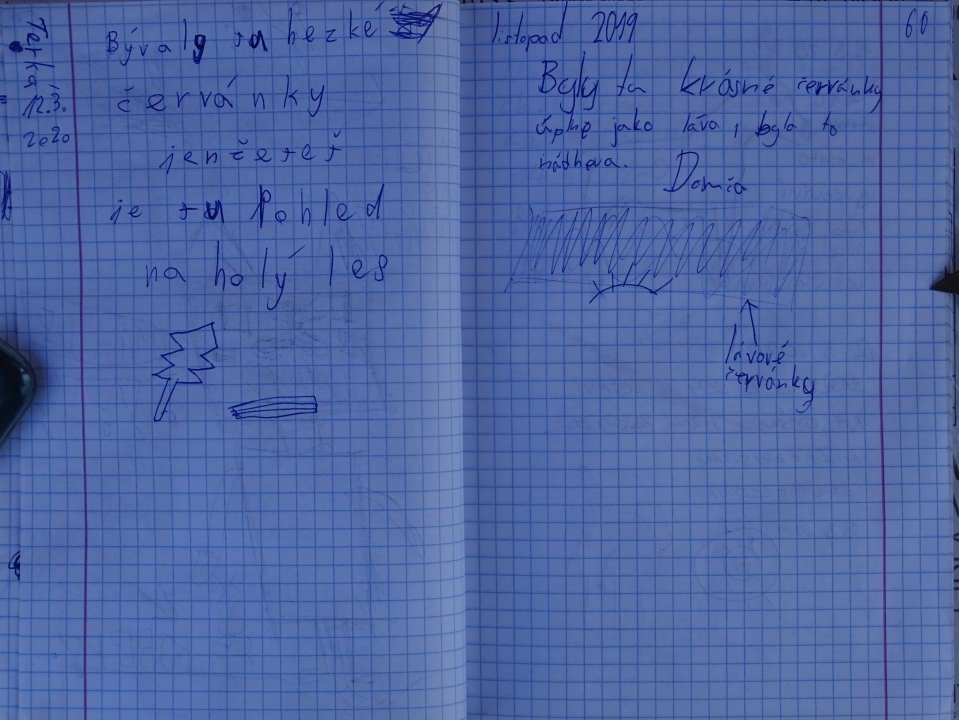 Terka
12.3.
2020
Bývaly tu hezké
červánky
jenčeteť
je tu Pohled
na holý les
listopad 2019
60
Byly tu krásné červánky
úplně jako láva, byla to
nádhera.
Domča
lávové
červánky